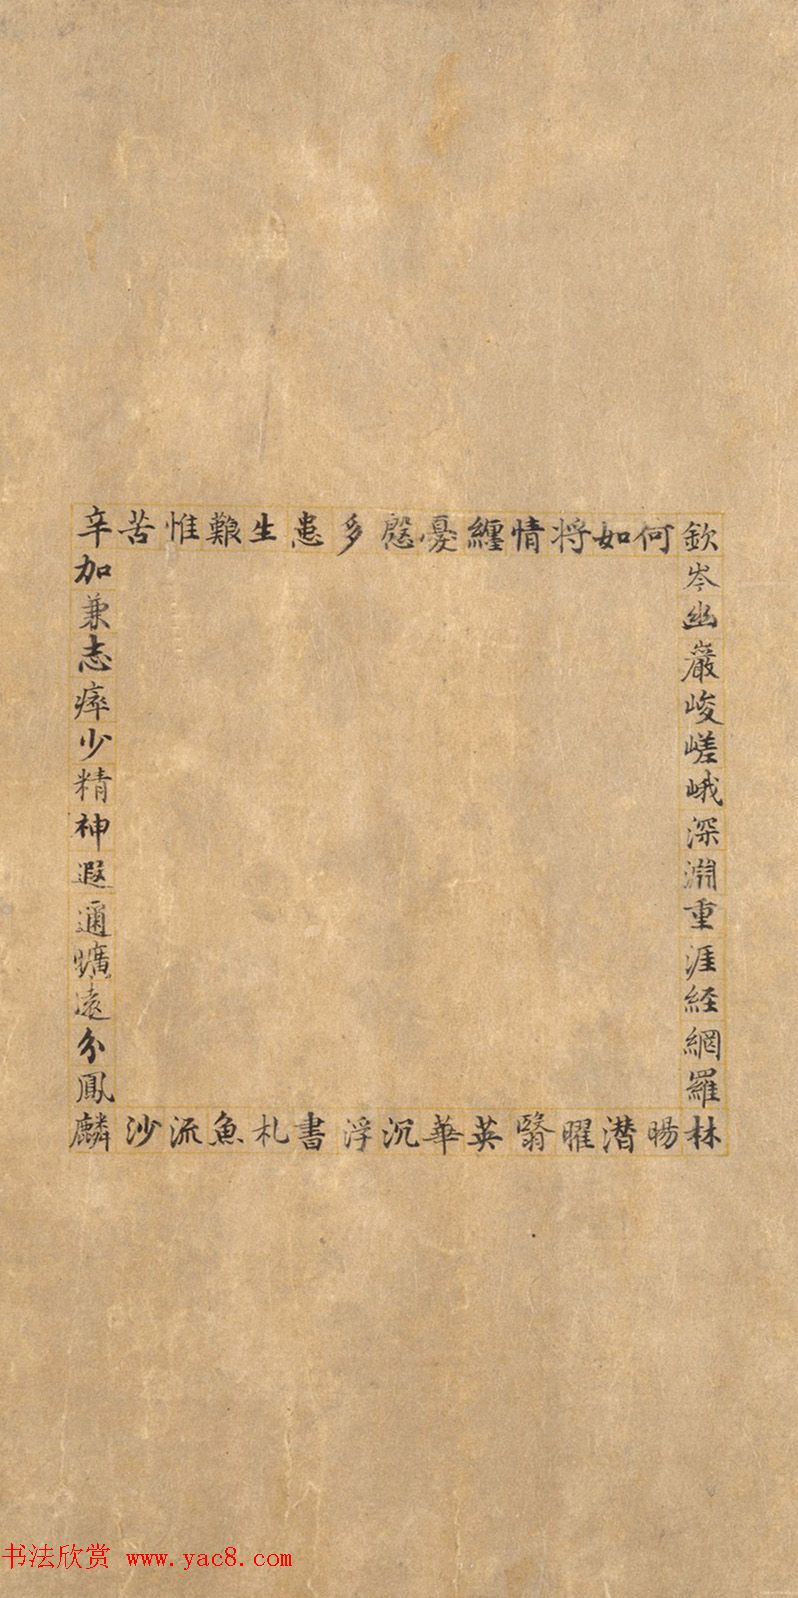 欽岑幽巖峻嵯峨深淵重涯経網羅林
何如将情纏憂慇多患生艱惟苦辛
加兼志瘁少精神遐通曠遠分鳳麟
暘潜曜翳英華沉浮書札魚流沙
书法欣赏 www.yac8.com